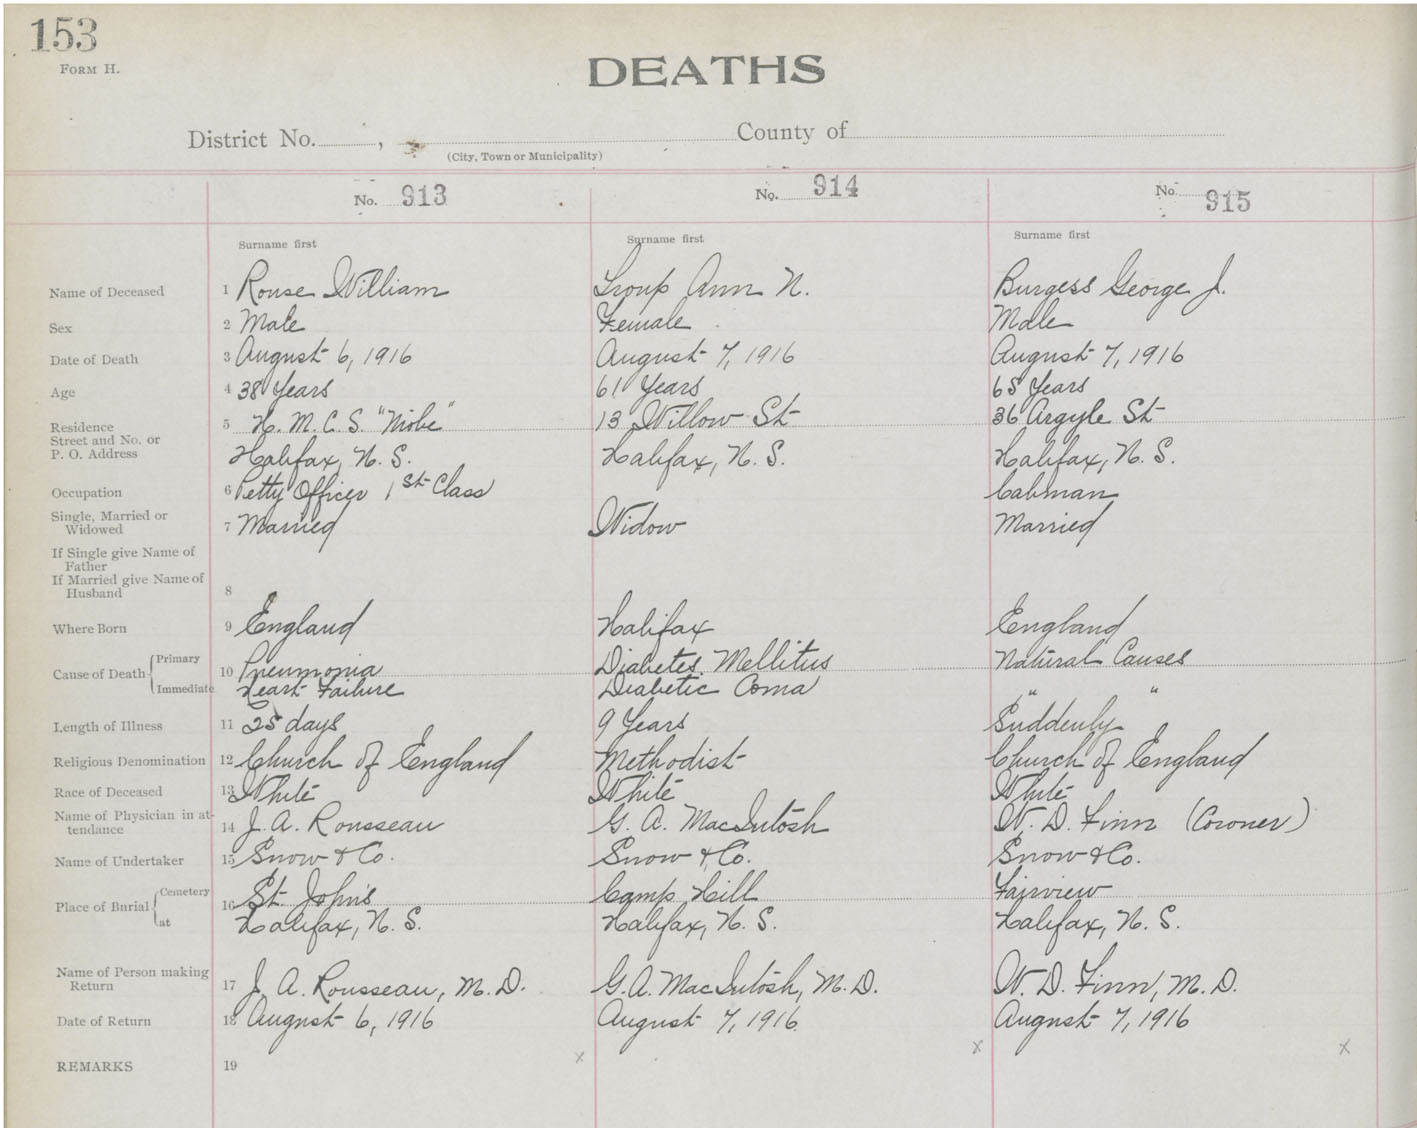 153
FORM H.
DEATHS
District No. , County of
(City, Town or Municipality)
No. 913 No. 914 No. 915
Surname first Surname first Surname first
Name of Deceased 1 Rouse William Troup Ann N. Burgess George J.
Sex 2 Male Female Male
Date of Death 3 August 6, 1916 August 7, 1916 August 7, 1916
Age 4 38 Years 61 Years 65 Years
Residence 5 H. M. C. S. "Niobe" 13 Willow St 36 Argyle St
Street and No. or
P. O. Address Halifax, N. S. Halifax, N. S. Halifax, N. S.
Occupation 6 Petty Officer 1st Class Cabman
Single, Married or
Widowed 7 Married Widow Married
If Single give Name of
Father
If Married give Name of
Husband 8
Where Born 9 England Halifax England
Cause of Death Primary 10 Pneumonia Diabetes Mellitus Natural Causes
Immediate Heart Failure Diabetic Coma " "
Length of Illness 11 25 days 9 Years Suddenly
Religious Denomination 12 Church of England Methodist Church of England
Race of Deceased 13 White White White
Name of Physician in at-
tendance 14 J. A. Rousseau G. A. MacIntosh W. D. Finn (Coroner)
Name of Undertaker 15 Snow & Co. Snow & Co. Snow & Co.
Place of Burial Cemetery 16 St. John's Camp Hill Fairview
at Halifax, N. S. Halifax, N. S. Halifax, N. S.
Name of Person making
Return 17 J. A. Rousseau, M. D. G. A. MacIntosh, M. D. W. D. Finn, M. D.
Date of Return 18 August 6, 1916 August 7, 1916 August 7, 1916
x x x
REMARKS 19